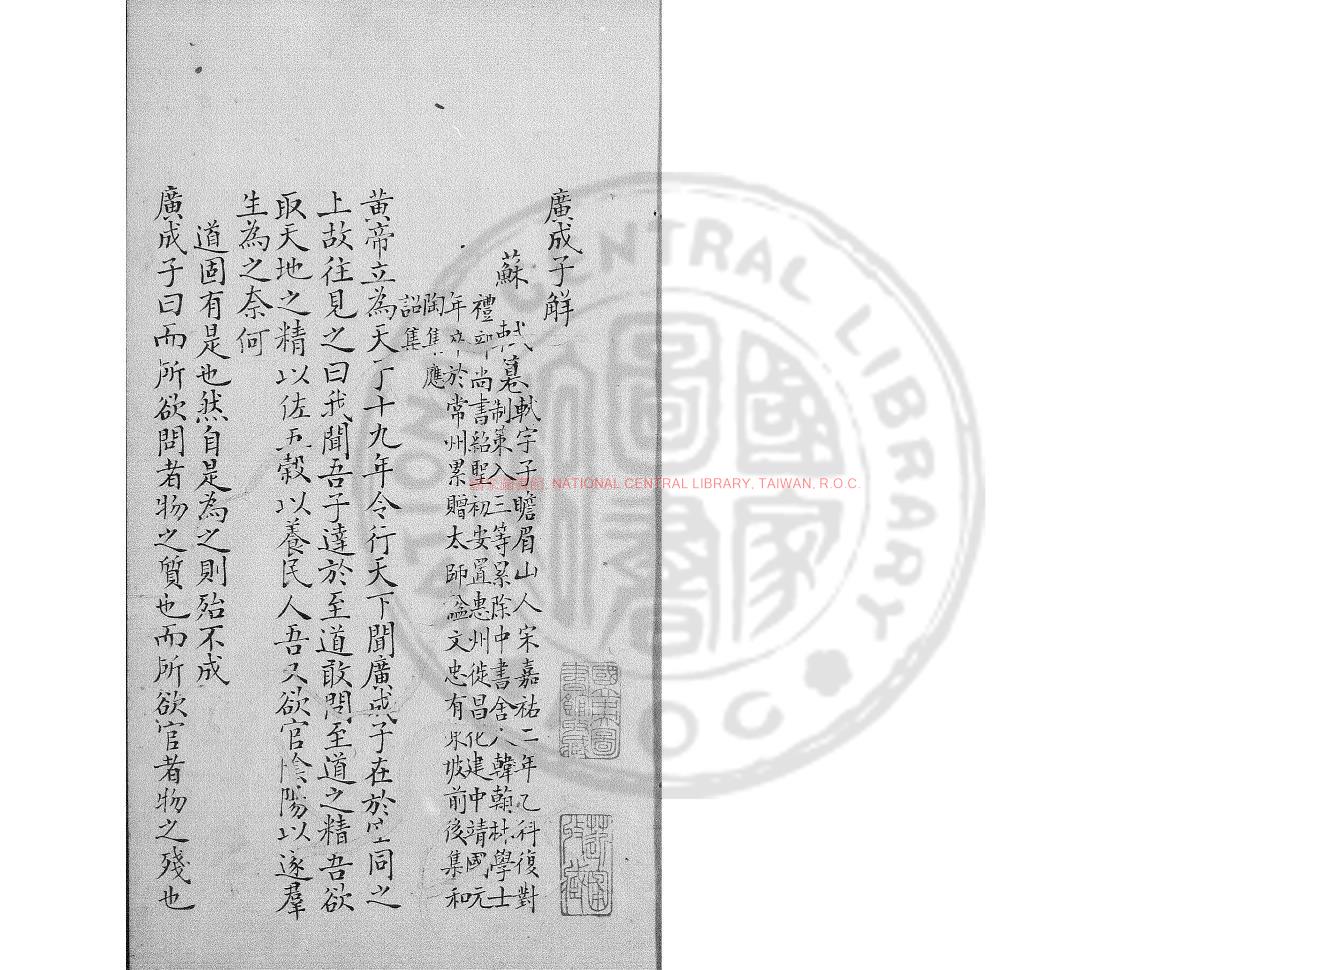 廣成子解
蘇軾
軾字子瞻眉山人宋嘉祐二年乙科復對
制策入三等累除中書舍人翰林學士
禮部尚書紹聖初安置惠州徙昌化建中靖國元
年卒於常州累贈太師謚文忠有東坡前後集和
陶集應
詔集
黄帝立為天子十九年令行天下聞廣成子在於空同之
上故往見之曰我聞吾子達於至道敢問至道之精吾欲
取天地之精以佐五穀以養民人吾又欲官陰陽以遂羣
生為之奈何
道固有是也然自是為之則殆不成
廣成子曰而所欲問者物之質也而所欲官者物之殘也
國家圖書館藏 NATIONAL CENTRAL LIBRARY, TAIWAN, R.O.C.
NATIONAL CENTRAL LIBRARY ROC